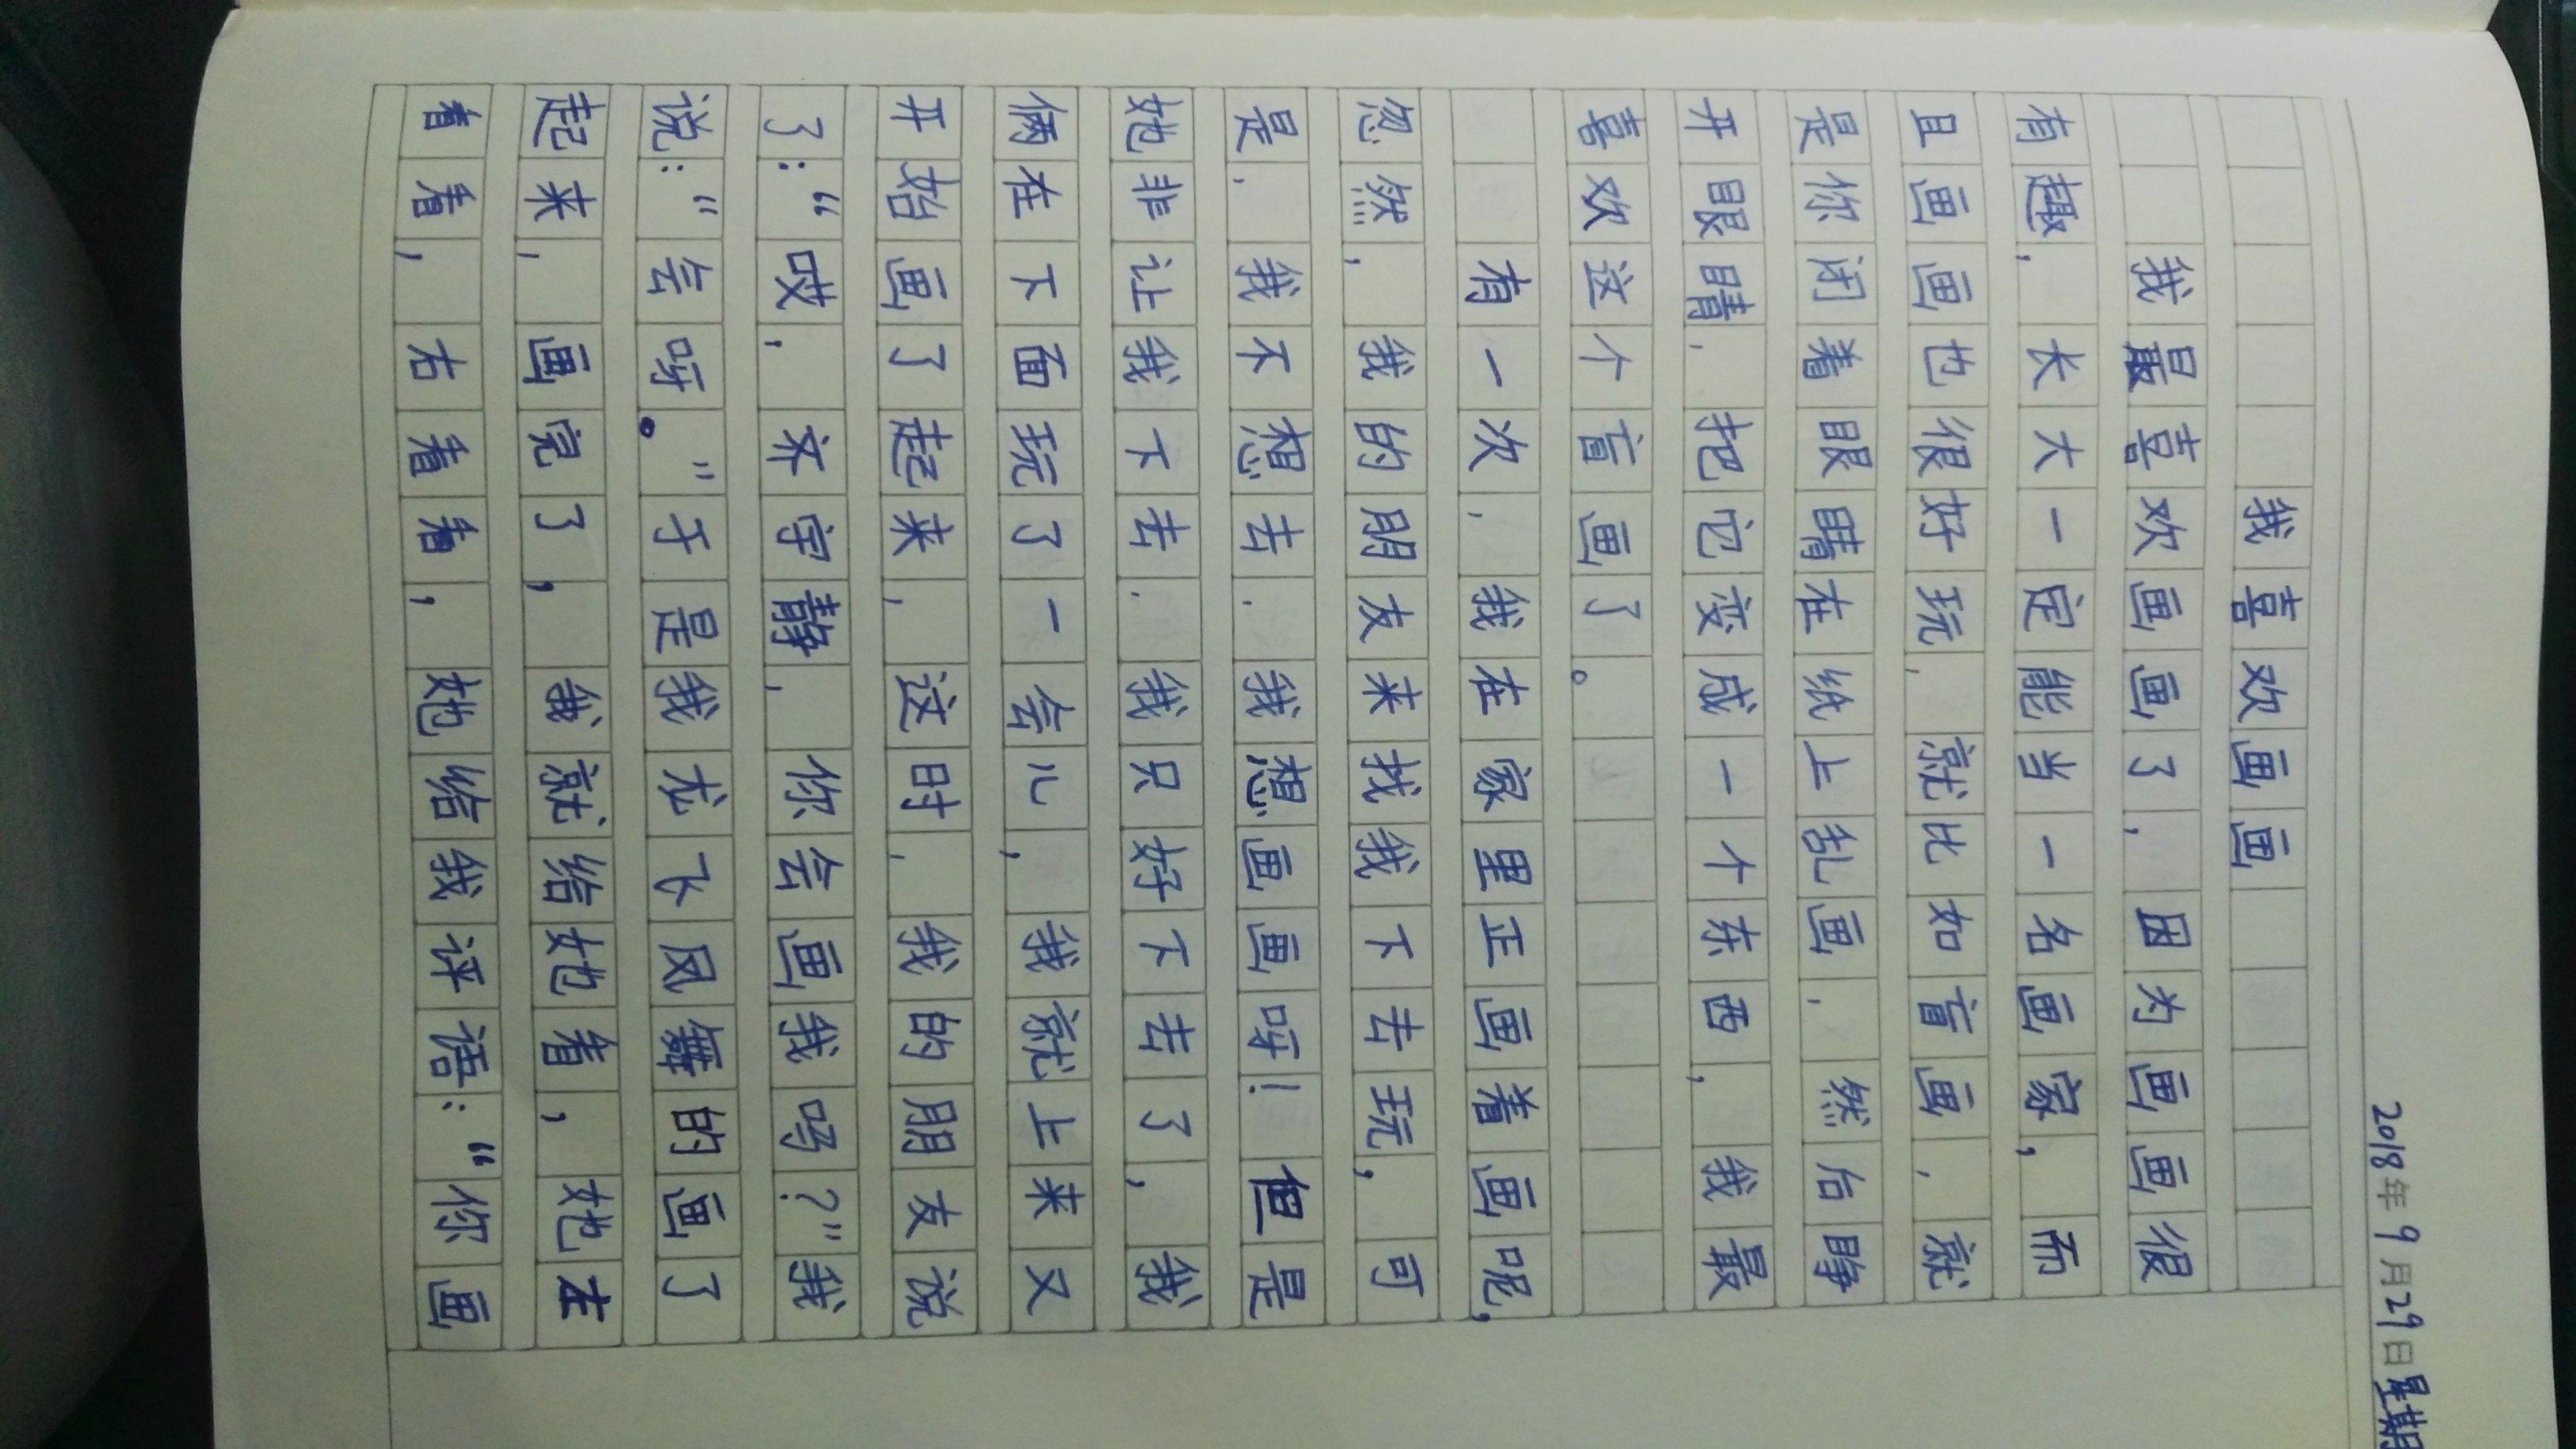 2018年9月29日星期
我喜欢画画
我最喜欢画画了，因为画画很
有趣，长大一定能当一名画家，而
且画画也很好玩，就比如盲画，就
是你闭着眼睛在纸上乱画，然后睁
开眼睛，把它变成一个东西，我最
喜欢这个盲画了。
有一次，我在家里正画着画呢，
忽然，我的朋友来找我下去玩，可
是，我不想去．我想画画呀！但是
她非让我下去．我只好下去了，我
俩在下面玩了一会儿，我就上来又
开始画了起来，这时，我的朋友说
了：“哎，齐宇静，你会画我吗？”我
说：“会呀。”于是我龙飞凤舞的画了
起来，画完了，我就给她看，她左
看看，右看看，她给我评语：“你画